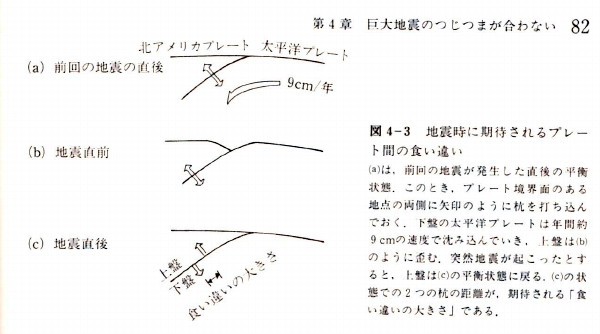 第4章 巨大地震のつじつまが合わない 82
北アメリカプレート 太平洋プレート
(a) 前回の地震の直後
9cm/年
(b) 地震直前
(c) 地震直後
上盤
下盤
食い違いの大きさ
図4-3 地震時に期待されるプレー
ト間の食い違い
(a)は,前回の地震が発生した直後の平衡
状態.このとき,プレート境界面のある
地点の両側に矢印のように杭を打ち込ん
でおく.下盤の太平洋プレートは年間約
9cmの速度で沈み込んでいき,上盤は(b)
のように歪む.突然地震が起こったとす
ると,上盤は(c)の平衡状態に戻る.(c)の状
態での2つの杭の距離が,期待される「食
い違いの大きさ」である.